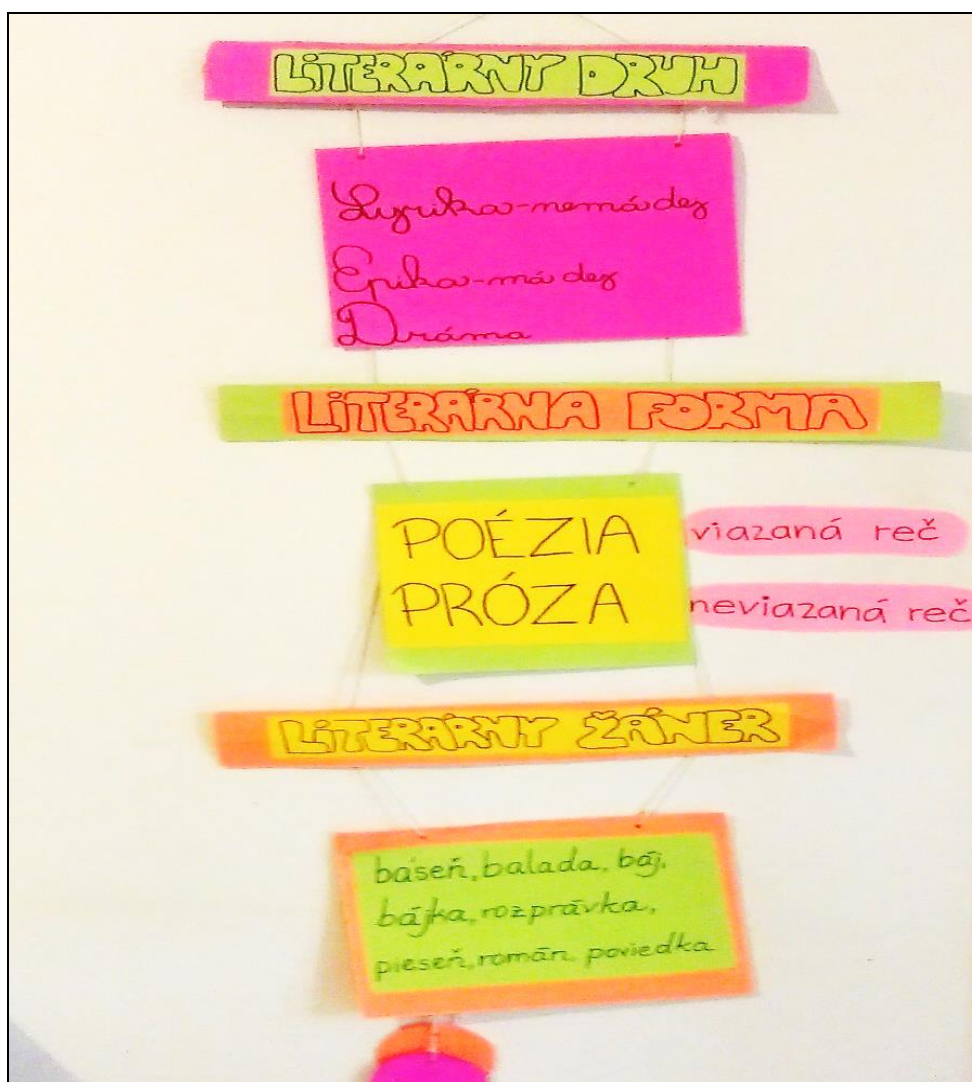 LITERÁRNY DRUH
Lyrika-nemá dej
Epika-má dej
Dráma
LITERÁRNA FORMA
POÉZIA viazaná reč
PRÓZA neviazaná reč
LITERÁRNY ŽÁNER
báseň, balada, báj,
bájka, rozprávka,
pieseň, román, poviedka